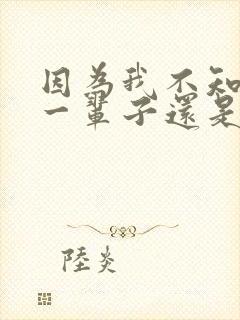 因為我不知
一輩子還是
陸炎